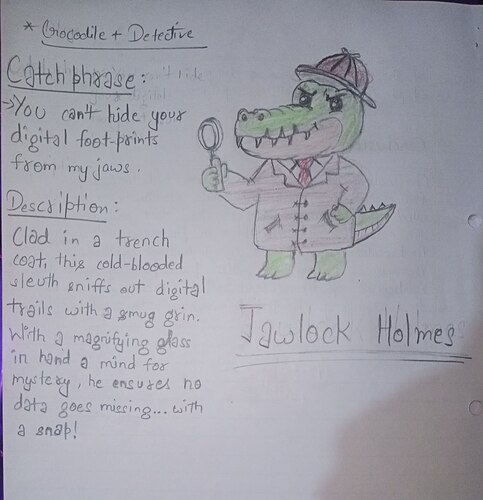 * Crocodile + Detective
Catch phrase :
→ You can't hide your
digital foot-prints
from my jaws.
Description :
Clad in a trench
coat, this cold-blooded
sleuth sniffs out digital
trails with a smug grin.
With a magnifying glass
in hand a mind for
mystery, he ensures no
data goes missing... with
a snap!
Jawlock Holmes